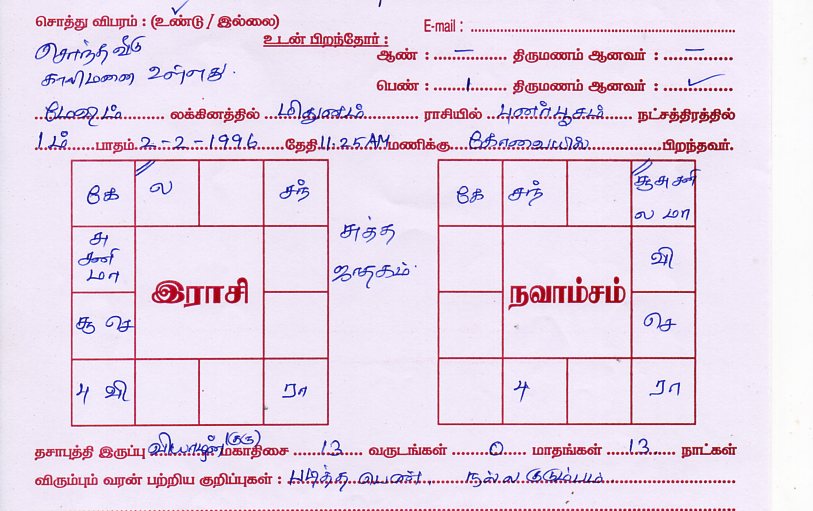 சொத்து விபரம் : (உண்டு / இல்லை) E-mail :
சொந்த வீடு உடன் பிறந்தோர் : ஆண் : – திருமணம் ஆனவர் : –
காலிமனை உள்ளது. பெண் : 1 திருமணம் ஆனவர் : ✓
மேஷம் லக்கினத்தில் மிதுனம் ராசியில் புனர்பூசம் நட்சத்திரத்தில்
1ம் பாதம் 2-2-1996 தேதி 11:25 AM மணிக்கு கோவையில் பிறந்தவர்.
கே ல சந்
சு சனி மா
சூ செ
பு வி ரா
இராசி
சுத்த ஜாதகம்.
கே சந் சூ சு சனி ல மா
வி
செ
பு ரா
நவாம்சம்
தசாபுத்தி இருப்பு வியாழன் (குரு) மகாதிசை 13 வருடங்கள் 0 மாதங்கள் 13 நாட்கள்
விரும்பும் வரன் பற்றிய குறிப்புகள் : படித்த பெண், நல்ல குடும்பம்